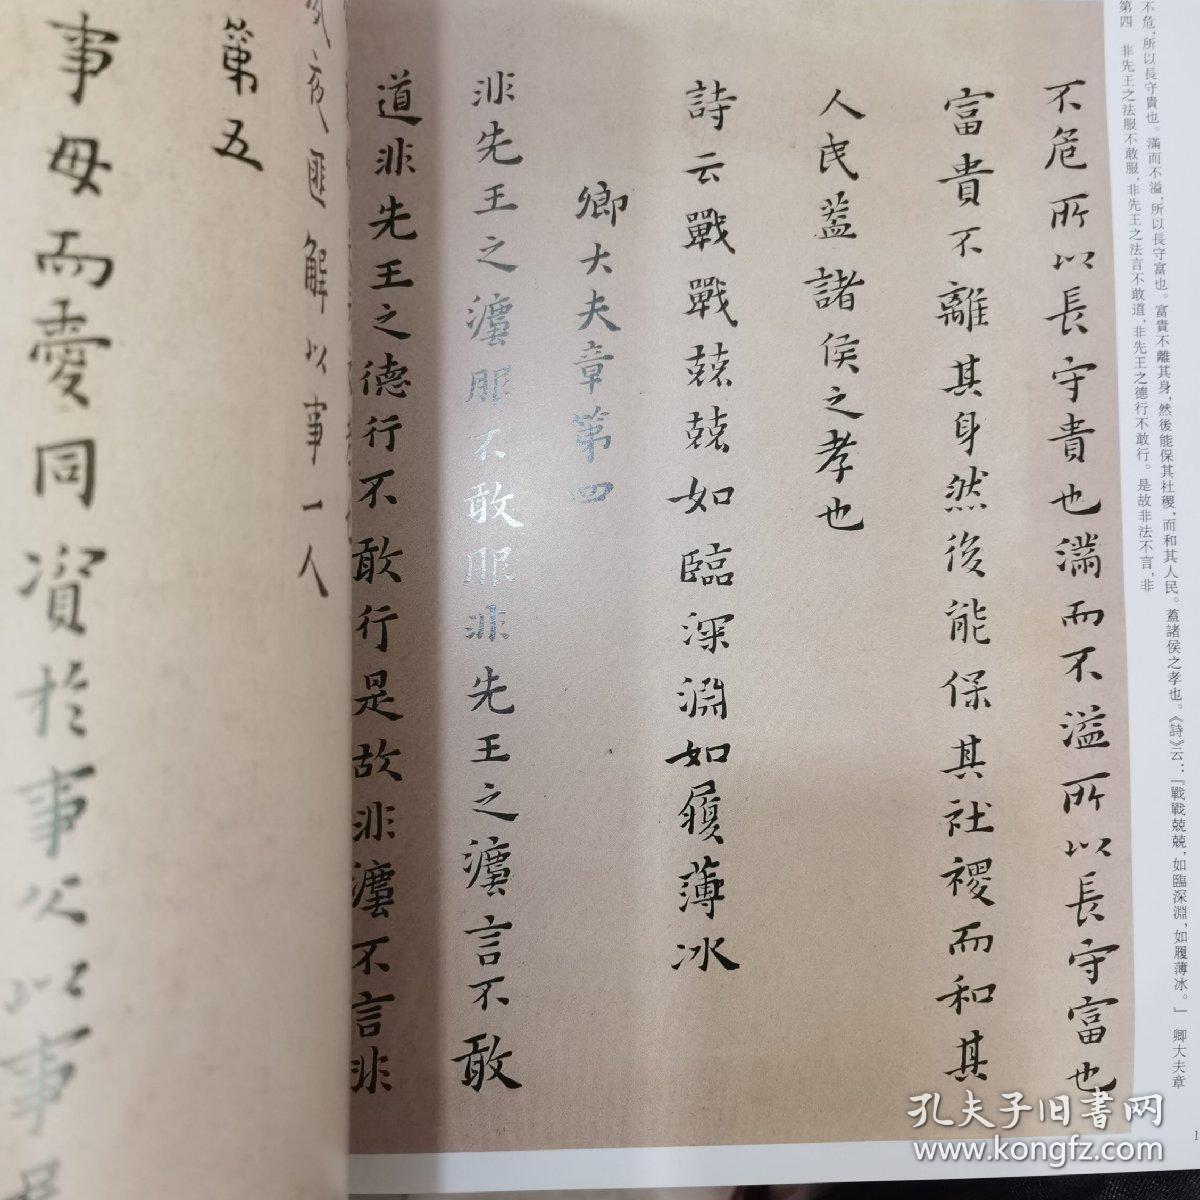 不危所以長守貴也滿而不溢所以長守富也
富貴不離其身然後能保其社稷而和其
人民蓋諸侯之孝也
詩云戰戰兢兢如臨深淵如履薄冰
卿大夫章第四
非先王之灋服不敢服非先王之灋言不敢
道非先王之德行不敢行是故非灋不言非
夙夜匪解以事一人
第五
事母而愛同資於事父以事
不危，所以長守貴也。滿而不溢，所以長守富也。富貴不離其身，然後能保其社稷，而和其人民。蓋諸侯之孝也。《詩》云：「戰戰兢兢，如臨深淵，如履薄冰。」　卿大夫章
第四　非先王之法服不敢服，非先王之法言不敢道，非先王之德行不敢行。是故非法不言，非
孔夫子旧书网
www.kongfz.com